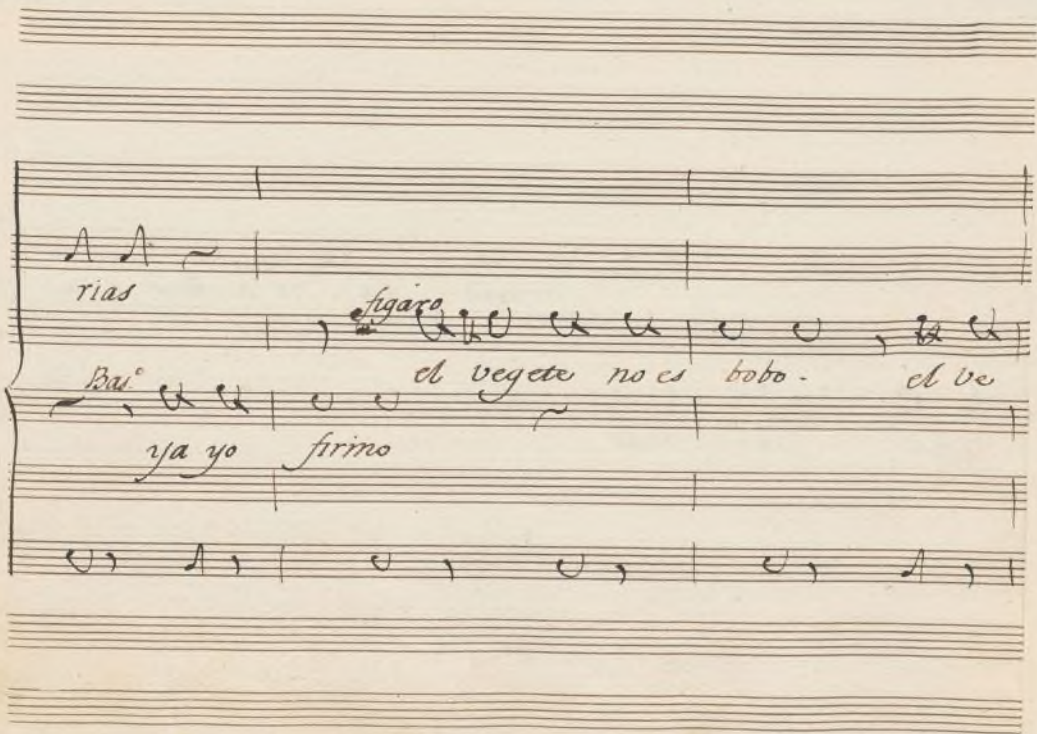 rias
figaro
el vegete no es bobo. el ve
Bas.º
ya yo firmo